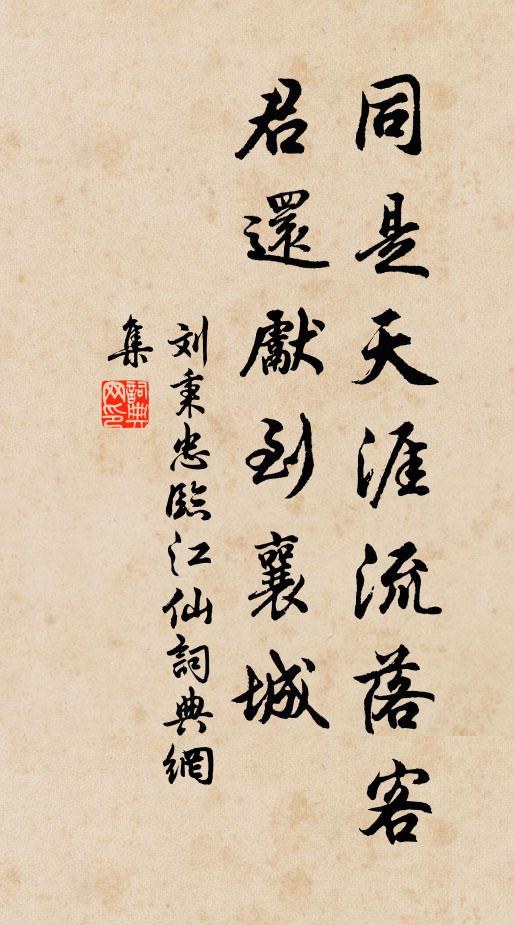 同是天涯流落客
君還獻到襄城
刘秉忠臨江仙詞典網
集
詞典網印